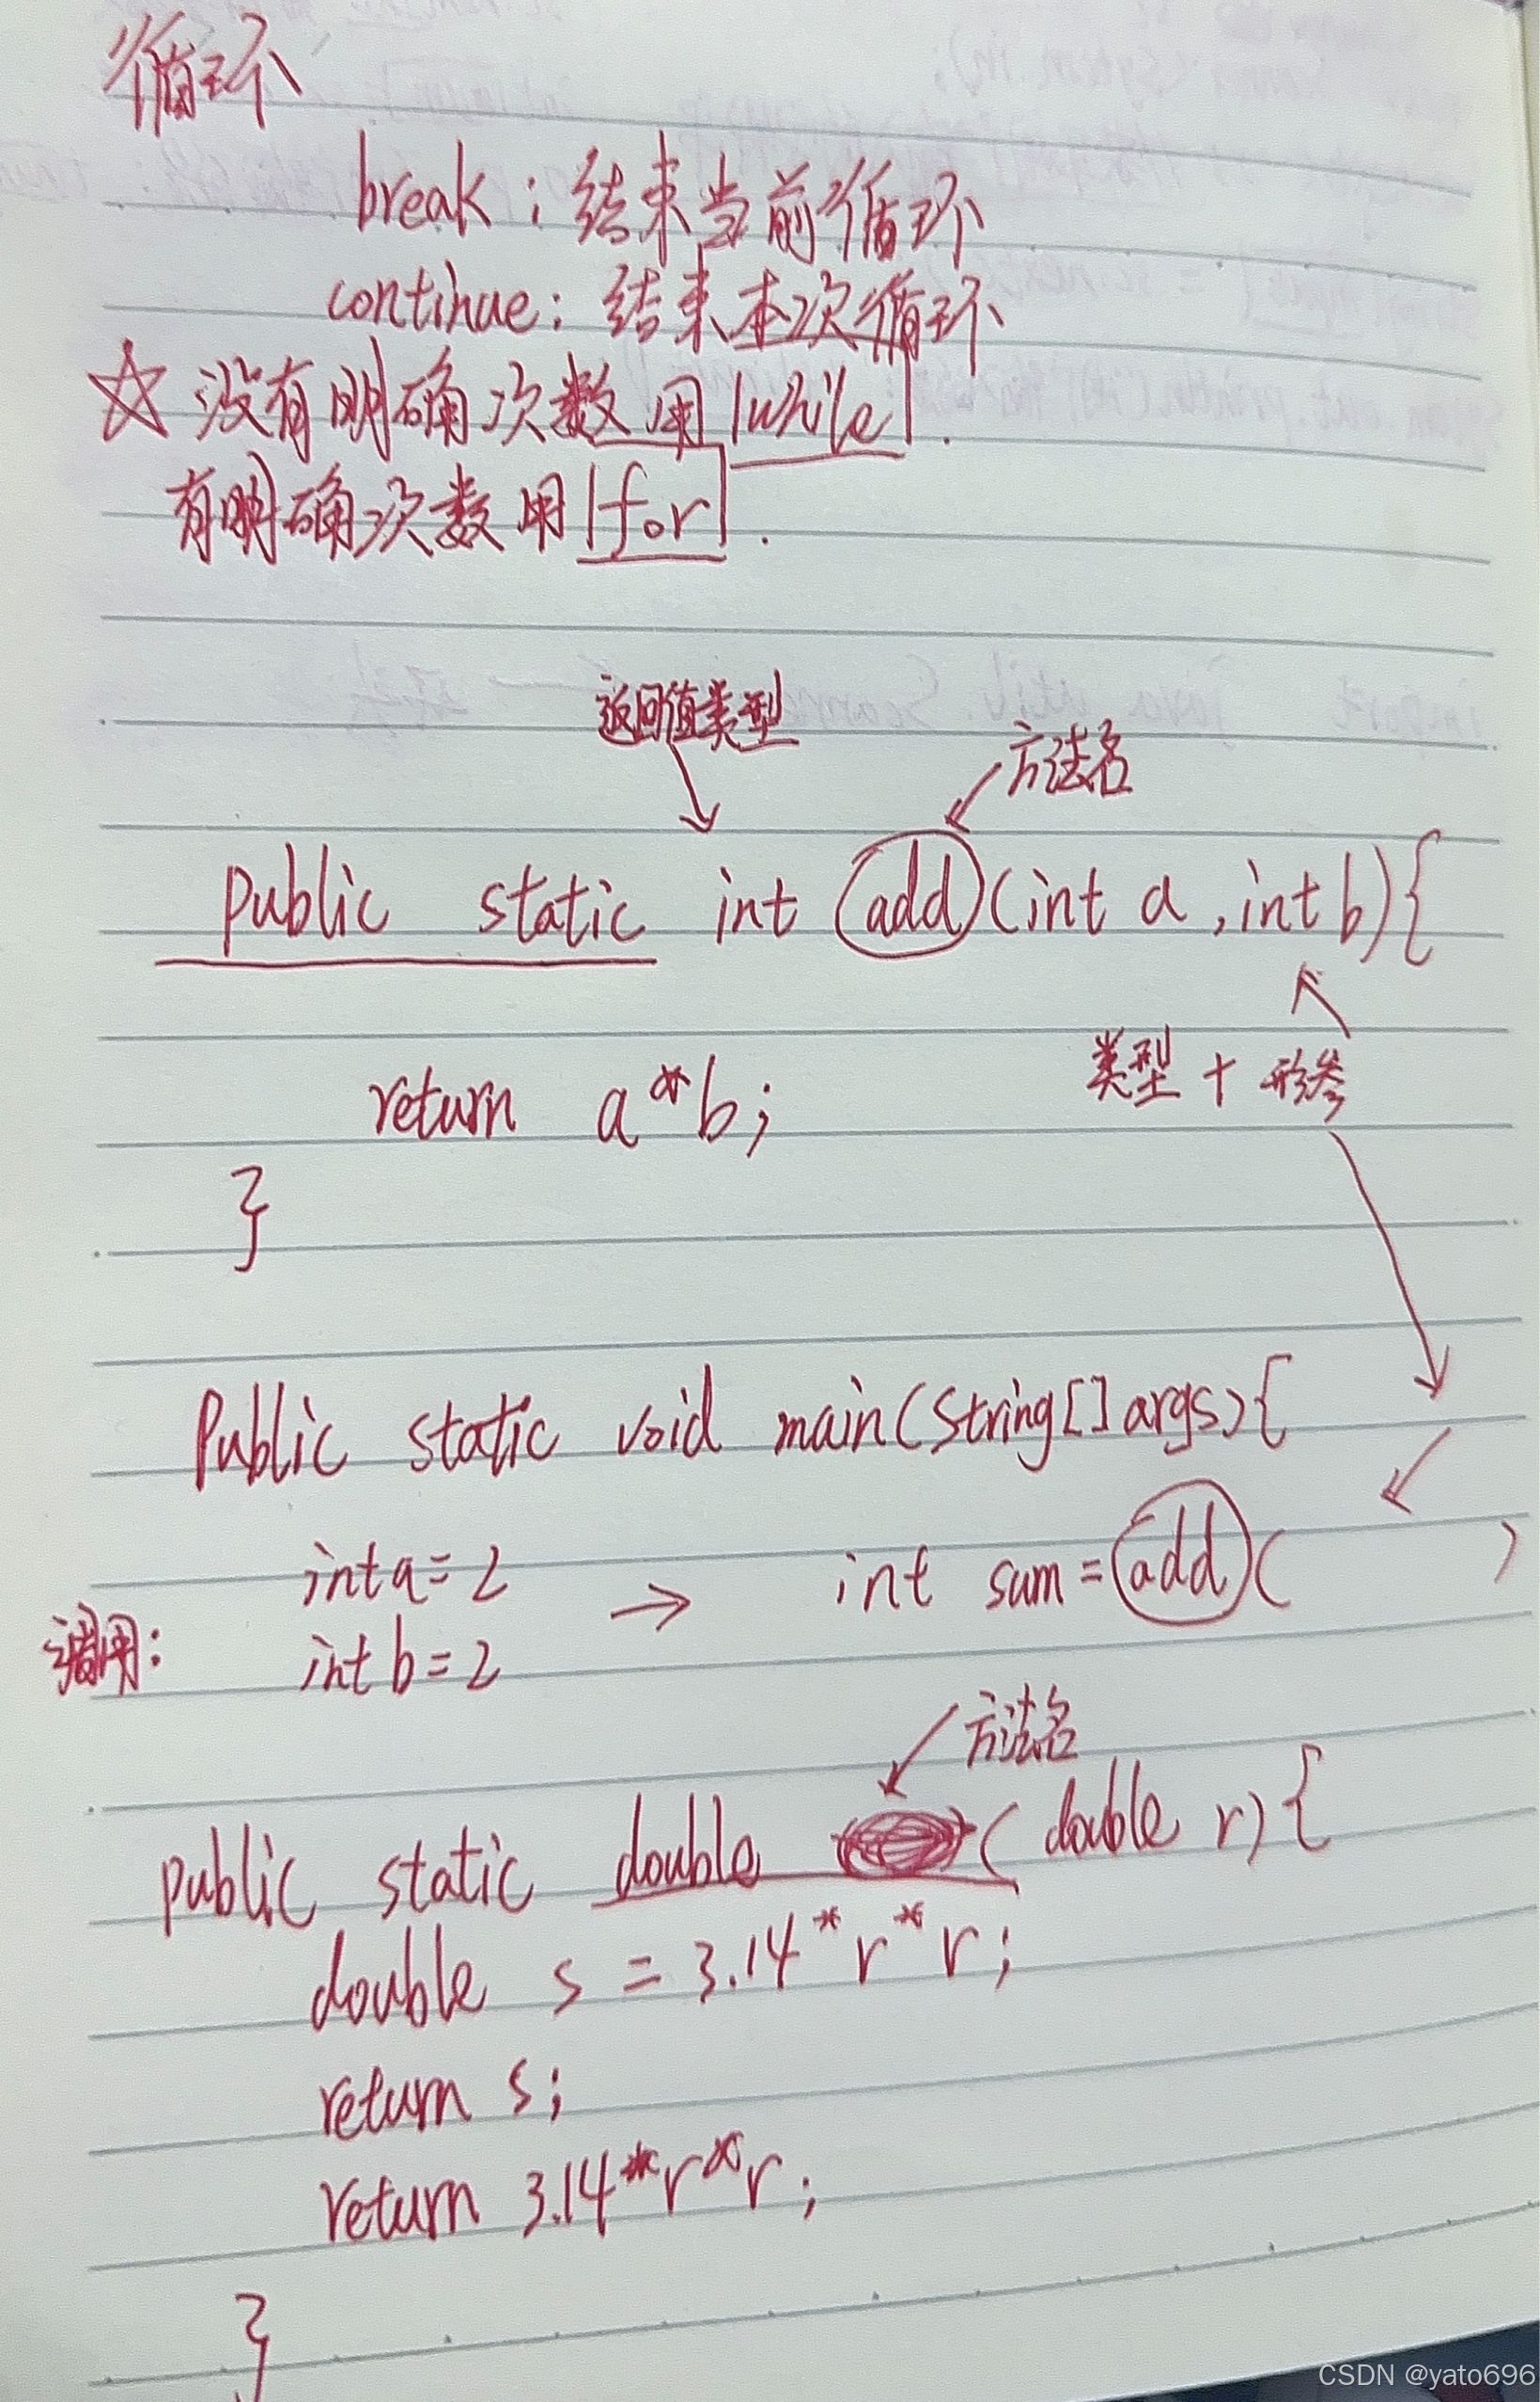 循环
break：结束当前循环
continue：结束本次循环
☆ 没有明确次数用 |while|.
有明确次数用 |for|.
返回值类型
方法名
public static int add(int a,int b){
类型 + 形参
return a*b;
}
Public static void main(String[] args){
int a=2 → int sum=add( )
调用：
int b=2
方法名
public static double ( double r){
double s = 3.14*r*r;
return s;
return 3.14*r*r;
}
CSDN @yato696